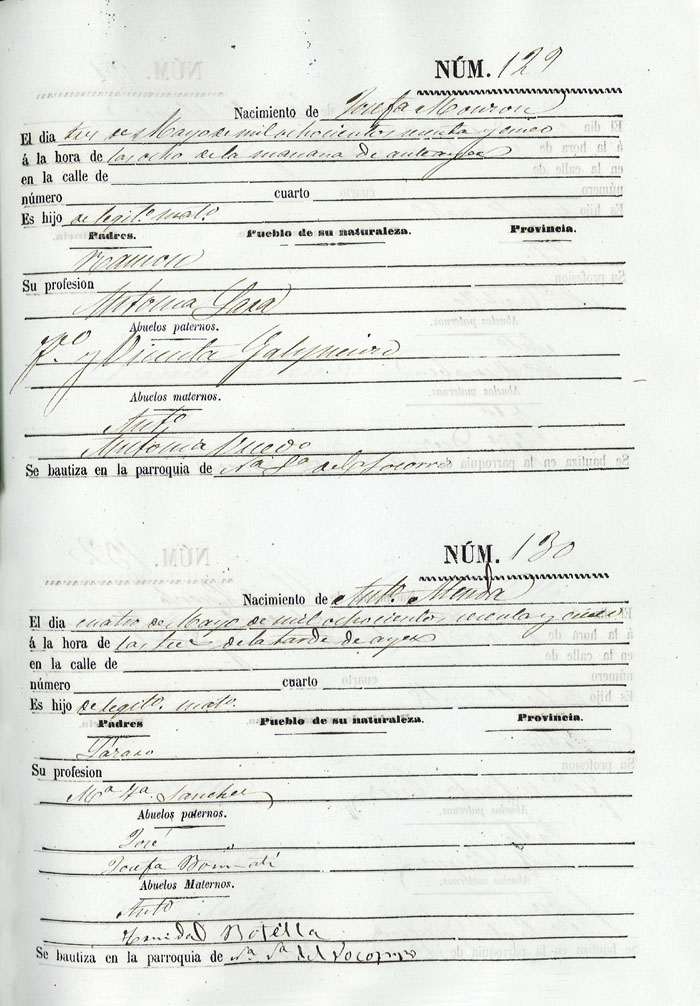 NÚM. 129
Nacimiento de Josefa Monrox
El dia tres de Mayo de mil ochocientos treinta y cinco
á la hora de las ocho de la mañana de antes ayer
en la calle de
número cuarto
Es hijo de legit.º mat.º
Padres. Pueblo de su naturaleza. Provincia.
Ramon
Su profesion
Antonia Lara
Abuelos paternos.
y Vicenta
Abuelos maternos.
Ant.º
Antonia
Se bautiza en la parroquia de N.ª S.ª del Socorro
NÚM. 130
Nacimiento de Ant.º
El dia cuatro de Mayo de mil ochocientos y cinco
á la hora de las tres de la tarde de ayer
en la calle de
número cuarto
Es hijo de legit.º mat.º
Padres Pueblo de su naturaleza. Provincia.
Su profesion
M.ª Sanchez
Abuelos paternos.
José
Josefa
Abuelos Maternos.
Ant.º
Trinidad Botella
Se bautiza en la parroquia de N.ª S.ª del Socorro